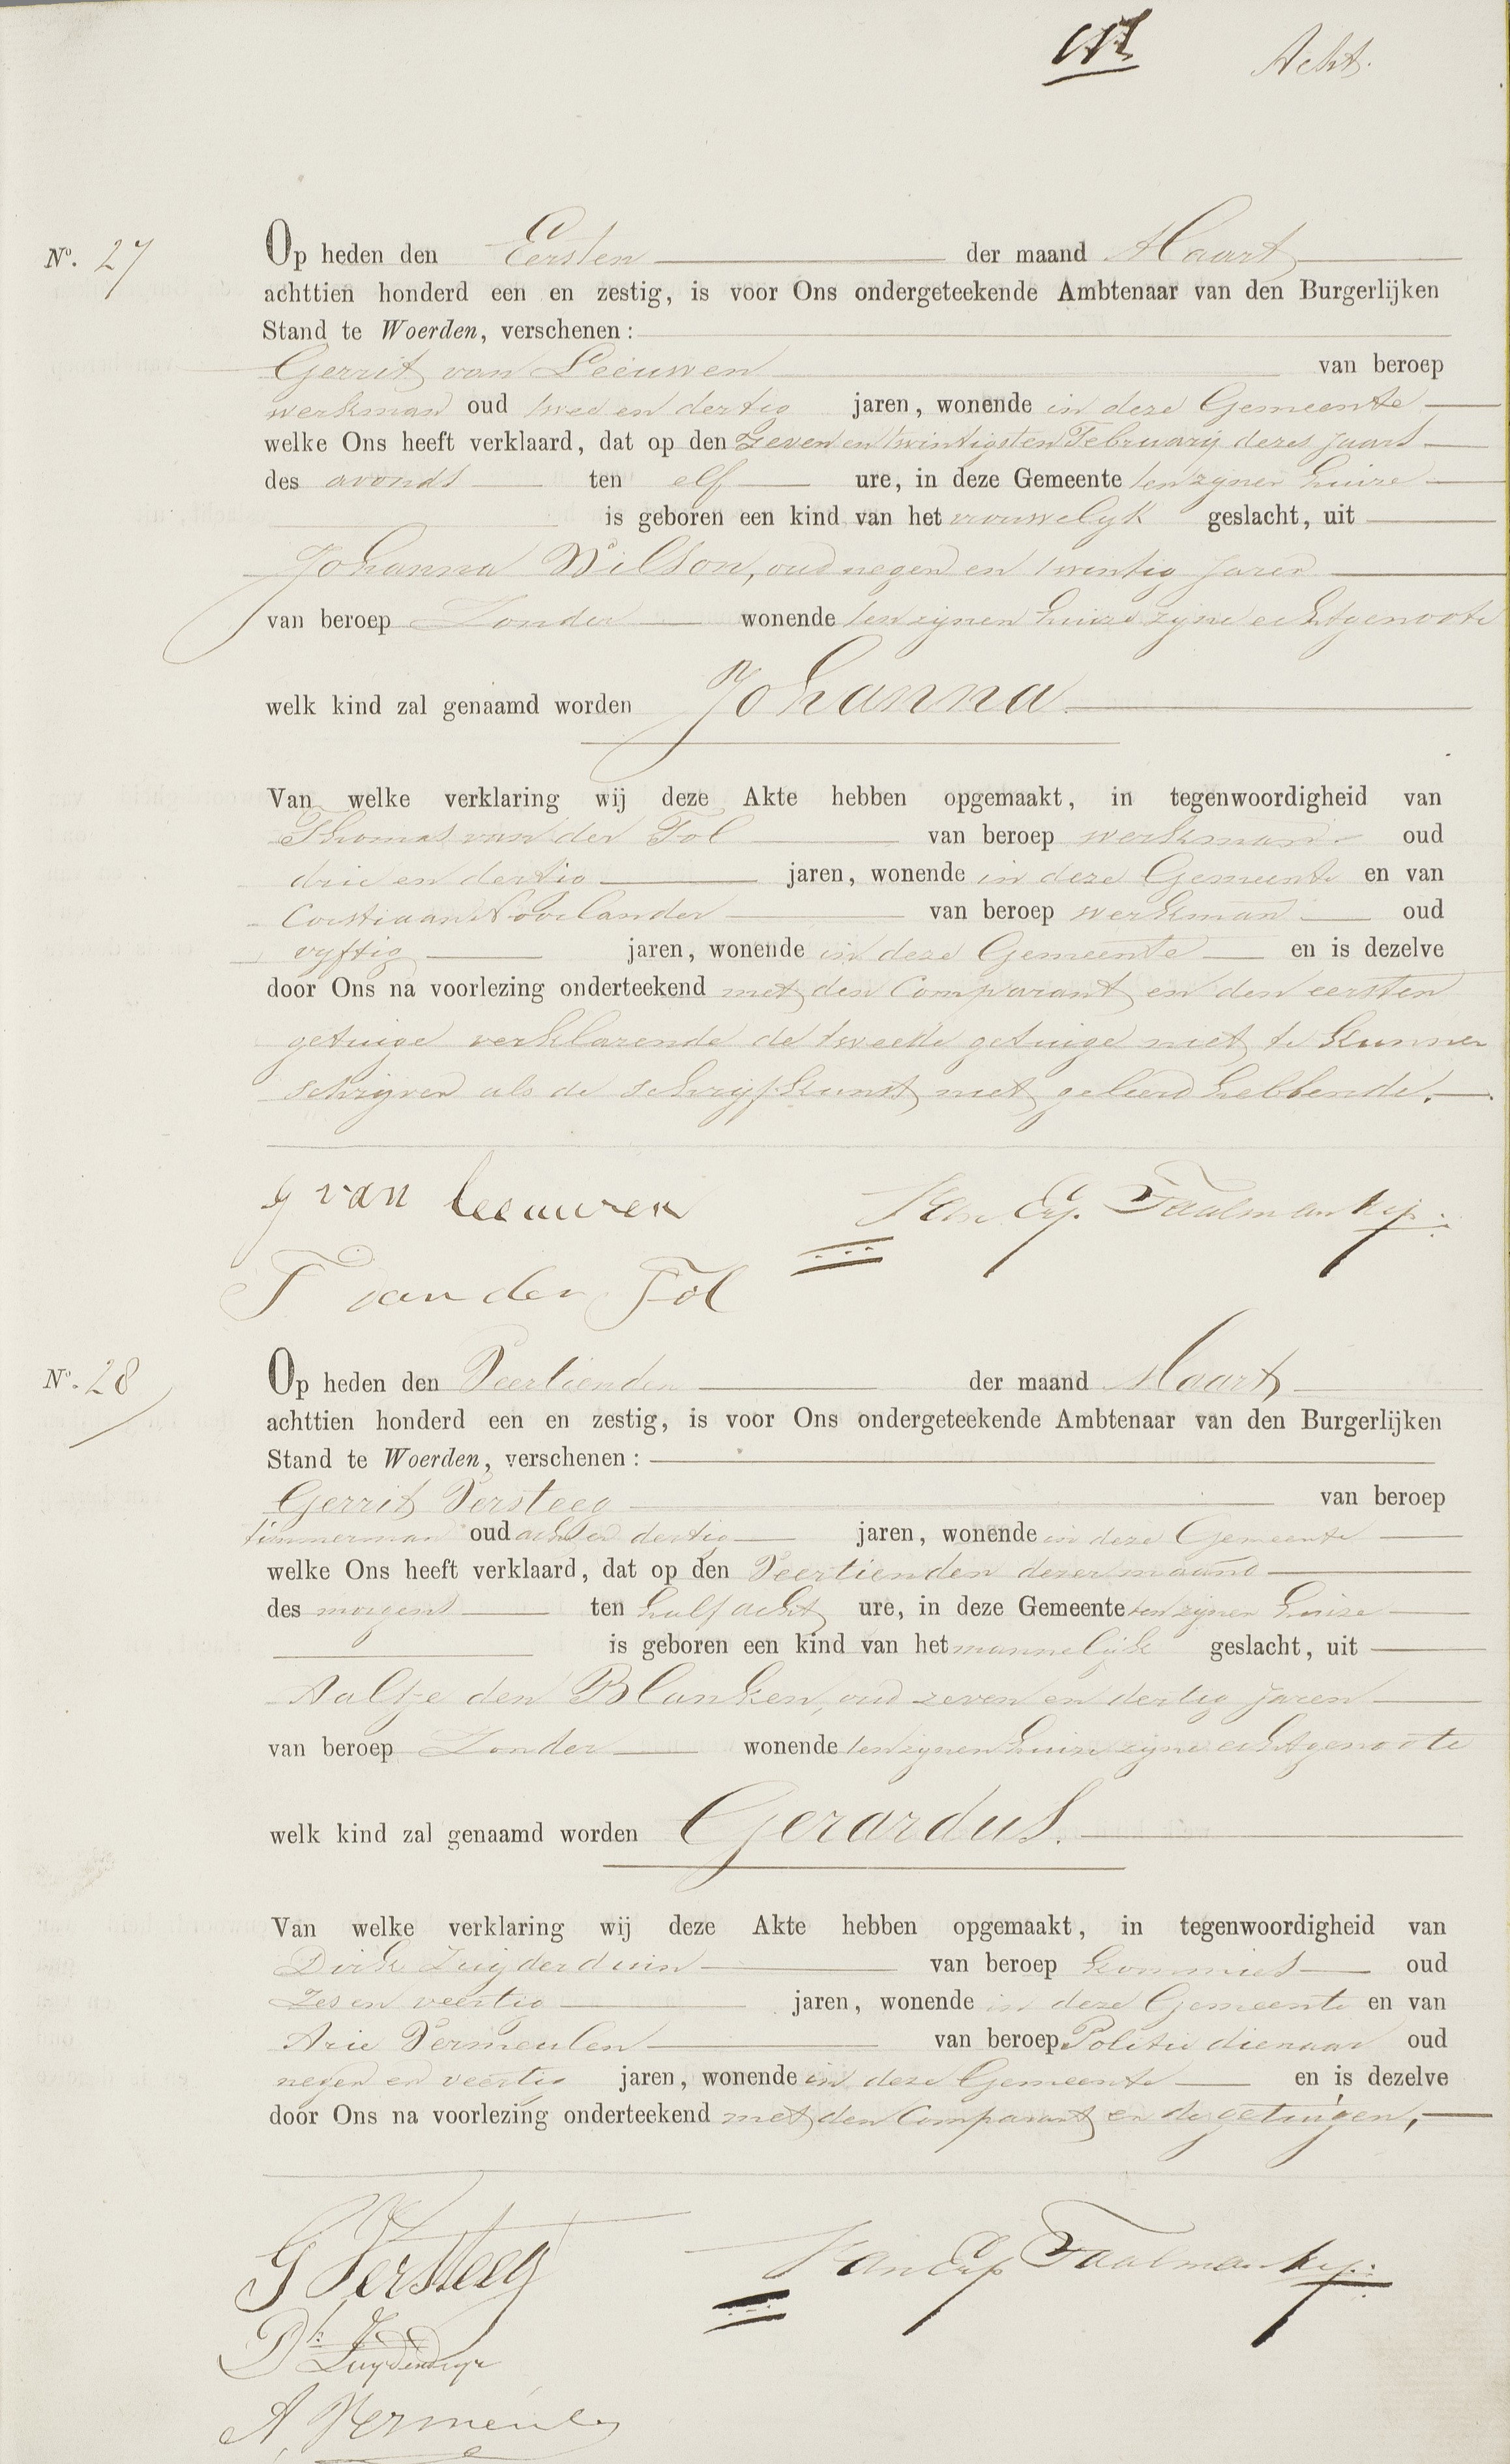 Acht.
N°. 27
Op heden den Eersten der maand Maart
achttien honderd een en zestig, is voor Ons ondergeteekende Ambtenaar van den Burgerlijken
Stand te Woerden, verschenen:
Gerrit van Leeuwen van beroep
werkman oud twee en dertig jaren, wonende in deze Gemeente
welke Ons heeft verklaard, dat op den zeven en twintigsten February dezes jaars
des avonds ten elf ure, in deze Gemeente ten zynen huize
is geboren een kind van het vrouwelyk geslacht, uit
Johanna Wilson, oud negen en twintig jaren
van beroep Zonder wonende ten zynen huize zyne echtgenoote
welk kind zal genaamd worden Johanna
Van welke verklaring wij deze Akte hebben opgemaakt, in tegenwoordigheid van
Thomas van der Tol van beroep werkman oud
drie en dertig jaren, wonende in deze Gemeente en van
van beroep werkman oud
vyftig jaren, wonende in deze Gemeente en is dezelve
door Ons na voorlezing onderteekend met den Comparant en den eersten
getuige verklarende de tweede getuige niet te kunnen
schryven als de schryfkunst niet geleerd hebbende.
G van Leeuwen
Van Erp Taalman Kip.
T van der Tol
N°. 28
Op heden den Veertienden der maand Maart
achttien honderd een en zestig, is voor Ons ondergeteekende Ambtenaar van den Burgerlijken
Stand te Woerden, verschenen:
Gerrit Versteeg van beroep
timmerman oud acht en dertig jaren, wonende in deze Gemeente
welke Ons heeft verklaard, dat op den Veertienden dezer maand
des morgens ten half acht ure, in deze Gemeente ten zynen huize
is geboren een kind van het mannelijk geslacht, uit
Aaltje den Blanken, oud zeven en dertig jaren
van beroep Zonder wonende ten zynen huize zyne echtgenoote
welk kind zal genaamd worden Gerardus.
Van welke verklaring wij deze Akte hebben opgemaakt, in tegenwoordigheid van
Dirk Zuyderduin van beroep kommies oud
Zes en veertig jaren, wonende in deze Gemeente en van
Arie Vermeulen van beroep Politie dienaar oud
negen en veertig jaren, wonende in deze Gemeente en is dezelve
door Ons na voorlezing onderteekend met den Comparant en de getuigen,
G Versteeg
Van Erp Taalman Kip.
Dk Zuyderduyn
A, Vermeulen